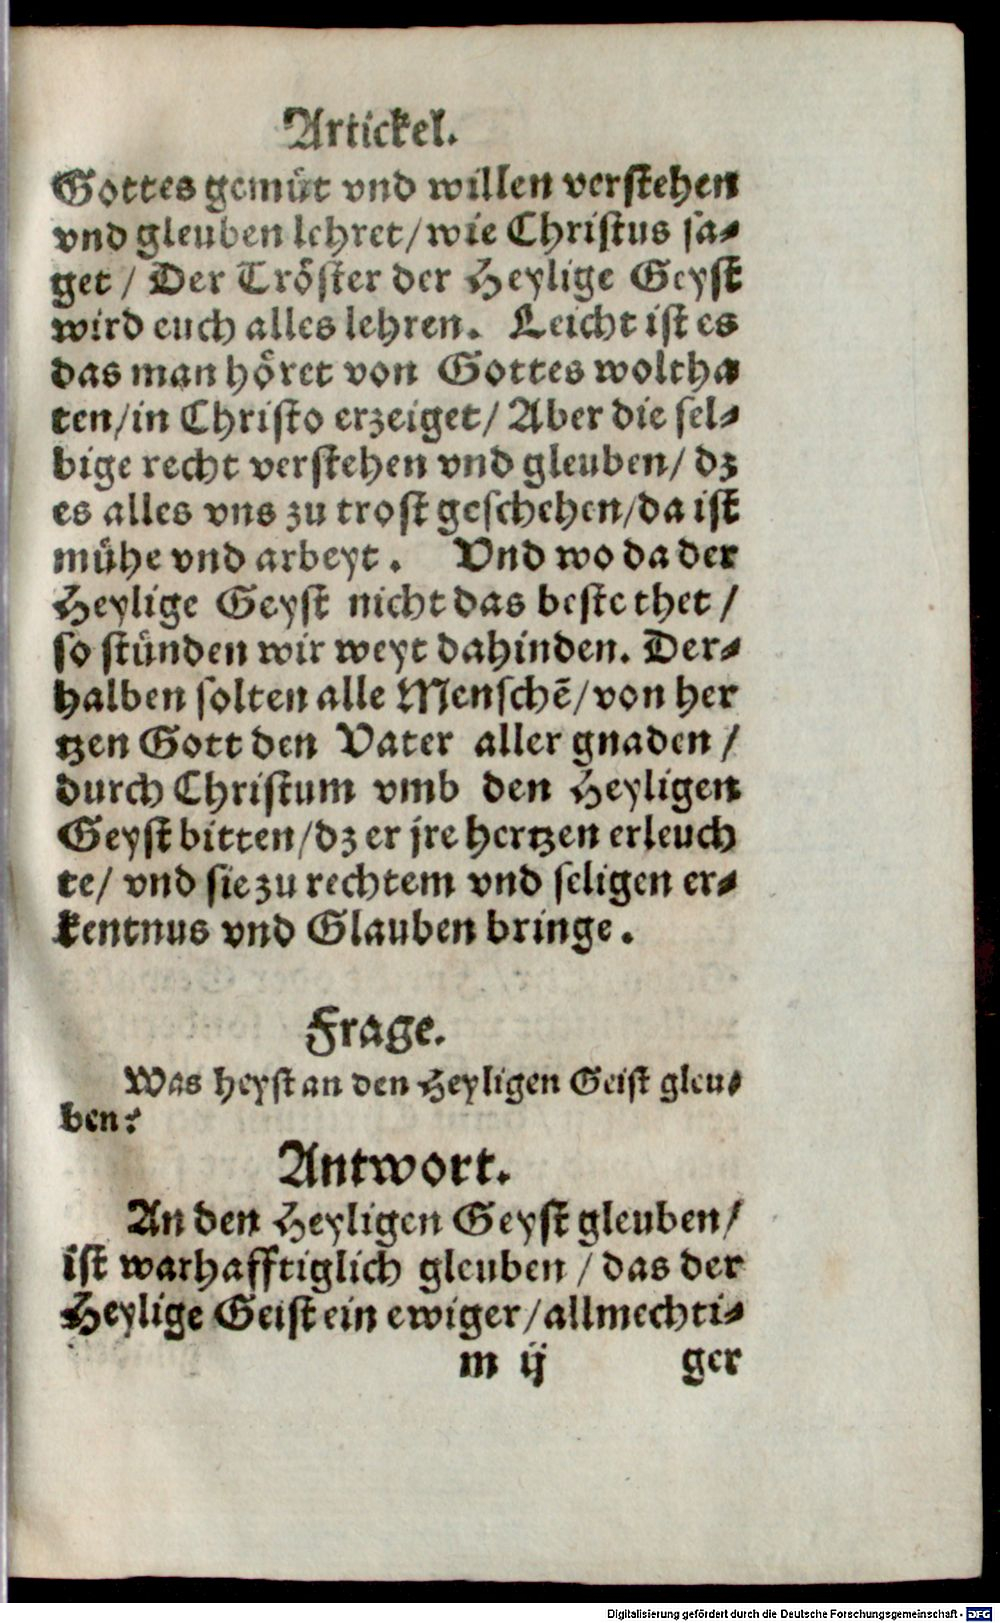 Artickel.
Gottes gemüt vnd willen verstehen
vnd gleuben lehret/wie Christus sa-
get / Der Tröster der Heylige Geyst
wird euch alles lehren. Leicht ist es
das man höret von Gottes woltha
ten/in Christo erzeiget/ Aber die sel-
bige recht verstehen vnd gleuben/ dz
es alles vns zu trost geschehen/da ist
mühe vnd arbeyt. Vnd wo da der
Heylige Geyst nicht das beste thet /
so stünden wir weyt dahinden. Der-
halben solten alle Menschē/von her
tzen Gott den Vater aller gnaden /
durch Christum vmb den Heyligen
Geyst bitten/dz er jre hertzen erleuch
te/ vnd sie zu rechtem vnd seligen er-
kentnus vnd Glauben bringe.
Frage.
Was heyst an den Heyligen Geist gleu-
ben?
Antwort.
An den Heyligen Geyst gleuben/
ist warhafftiglich gleuben / das der
Heylige Geist ein ewiger/allmechti-
m ij ger
Digitalisierung gefördert durch die Deutsche Forschungsgemeinschaft - DFG